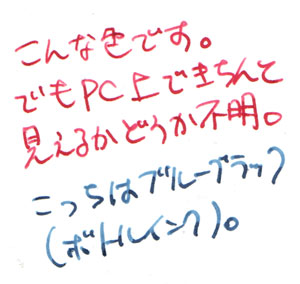 こんな色です。
でもPC上できちんと
見えるかどうか不明。
こっちはブルーブラック
(ボトルインク)。